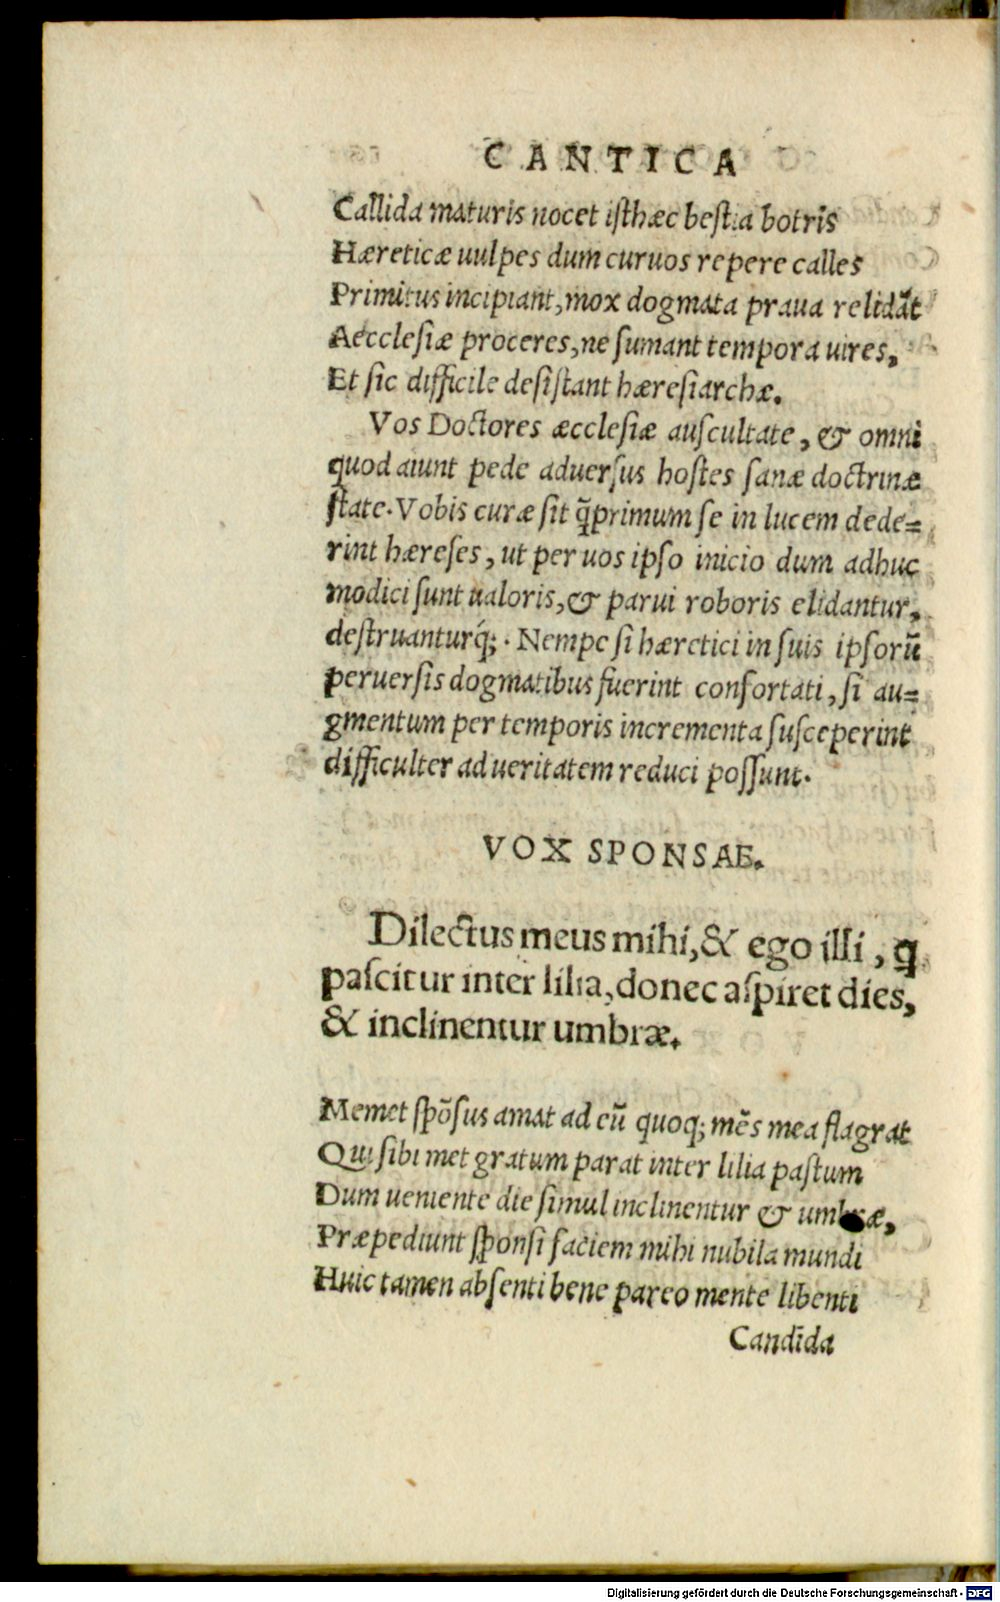 CANTICA
Callida maturis nocet isthæc bestia botris
Hæreticæ uulpes dum curuos repere calles
Primitus incipiant, mox dogmata praua relidãt
Aecclesiæ proceres, ne sumant tempora uires,
Et sic difficile desistant hæresiarchæ.
Vos Doctores æcclesiæ auscultate, & omni
quod aiunt pede aduersus hostes sanæ doctrinæ
state. Vobis curæ sit q̃primum se in lucem dede=
rint hæreses, ut per uos ipso inicio dum adhuc
modici sunt ualoris, & parui roboris elidantur,
destruanturq́;. Nempe si hæretici in suis ipsorũ
peruersis dogmatibus fuerint confortati, si au=
gmentum per temporis incrementa susceperint
difficulter ad ueritatem reduci possunt.
VOX SPONSAE.
Dilectus meus mihi, & ego illi, q
pascitur inter lilia, donec aspiret dies,
& inclinentur umbræ.
Memet spõsus amat ad eũ quoq; mẽs mea flagrat
Qui sibi met gratum parat inter lilia pastum
Dum ueniente die simul inclinentur & umbræ,
Præpediunt sponsi faciem mihi nubila mundi
Huic tamen absenti bene pareo mente libenti
Candida
Digitalisierung gefördert durch die Deutsche Forschungsgemeinschaft - DFG